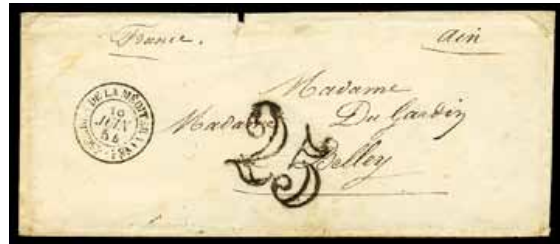 France.
Ain
DE LA MÉDIT
10
JUIN
54
Madame
Madame Du Gardin
25
Belley